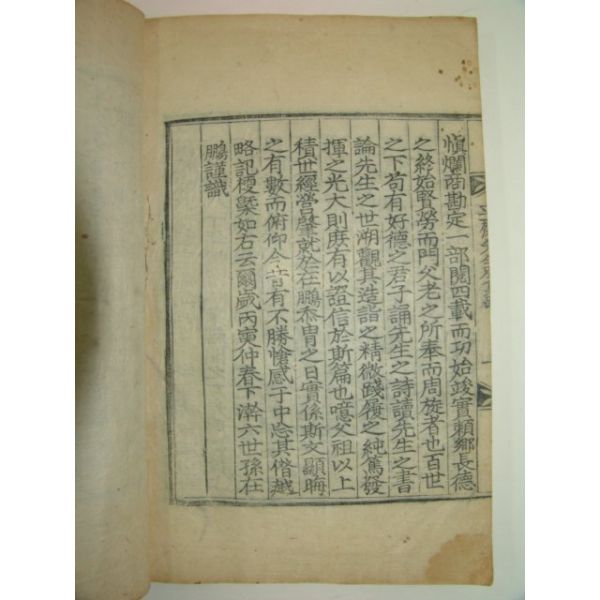 愼爛商勘定一部閱四載而功始竣實賴鄕長德
之終始賢勞而門父老之所奉而周旋者也百世
之下苟有好德之君子誦先生之詩讀先生之書
論先生之世溯觀其造詣之精微踐履之純篤發
揮之光大則庶有以證信於斯篇也噫父祖以上
積世經營肇就於在鵬忝冑之日實係斯文顯晦
之有數而俯仰今昔有不勝愴感于中忘其僭越
略記梗槩如右云爾歲丙寅仲春下澣六世孫在
鵬謹識